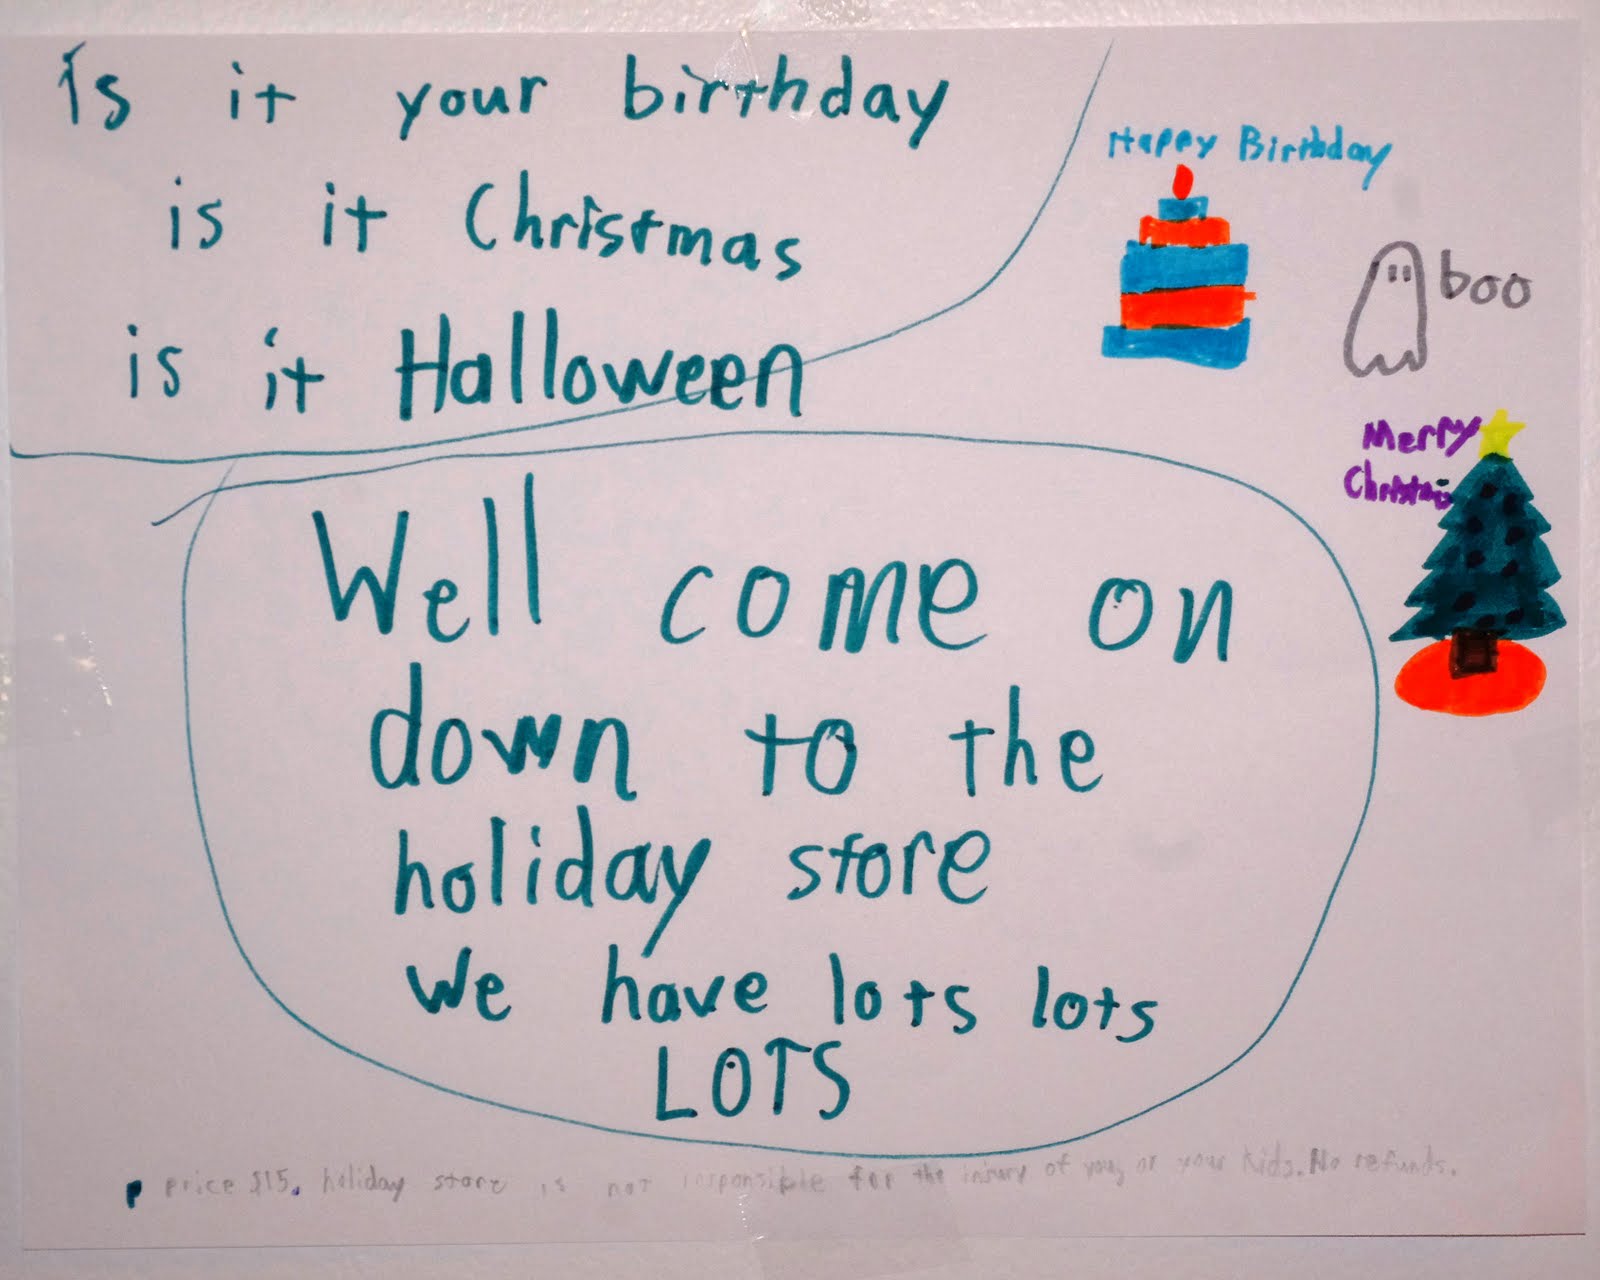 Is it your birthday
is it Christmas
is it Halloween
Happy Birthday
boo
Merry
Christmas
Well come on
down to the
holiday store
We have lots lots
LOTS
price $15. holiday store is not responsible for the injury of you, or your kids. No refunds.